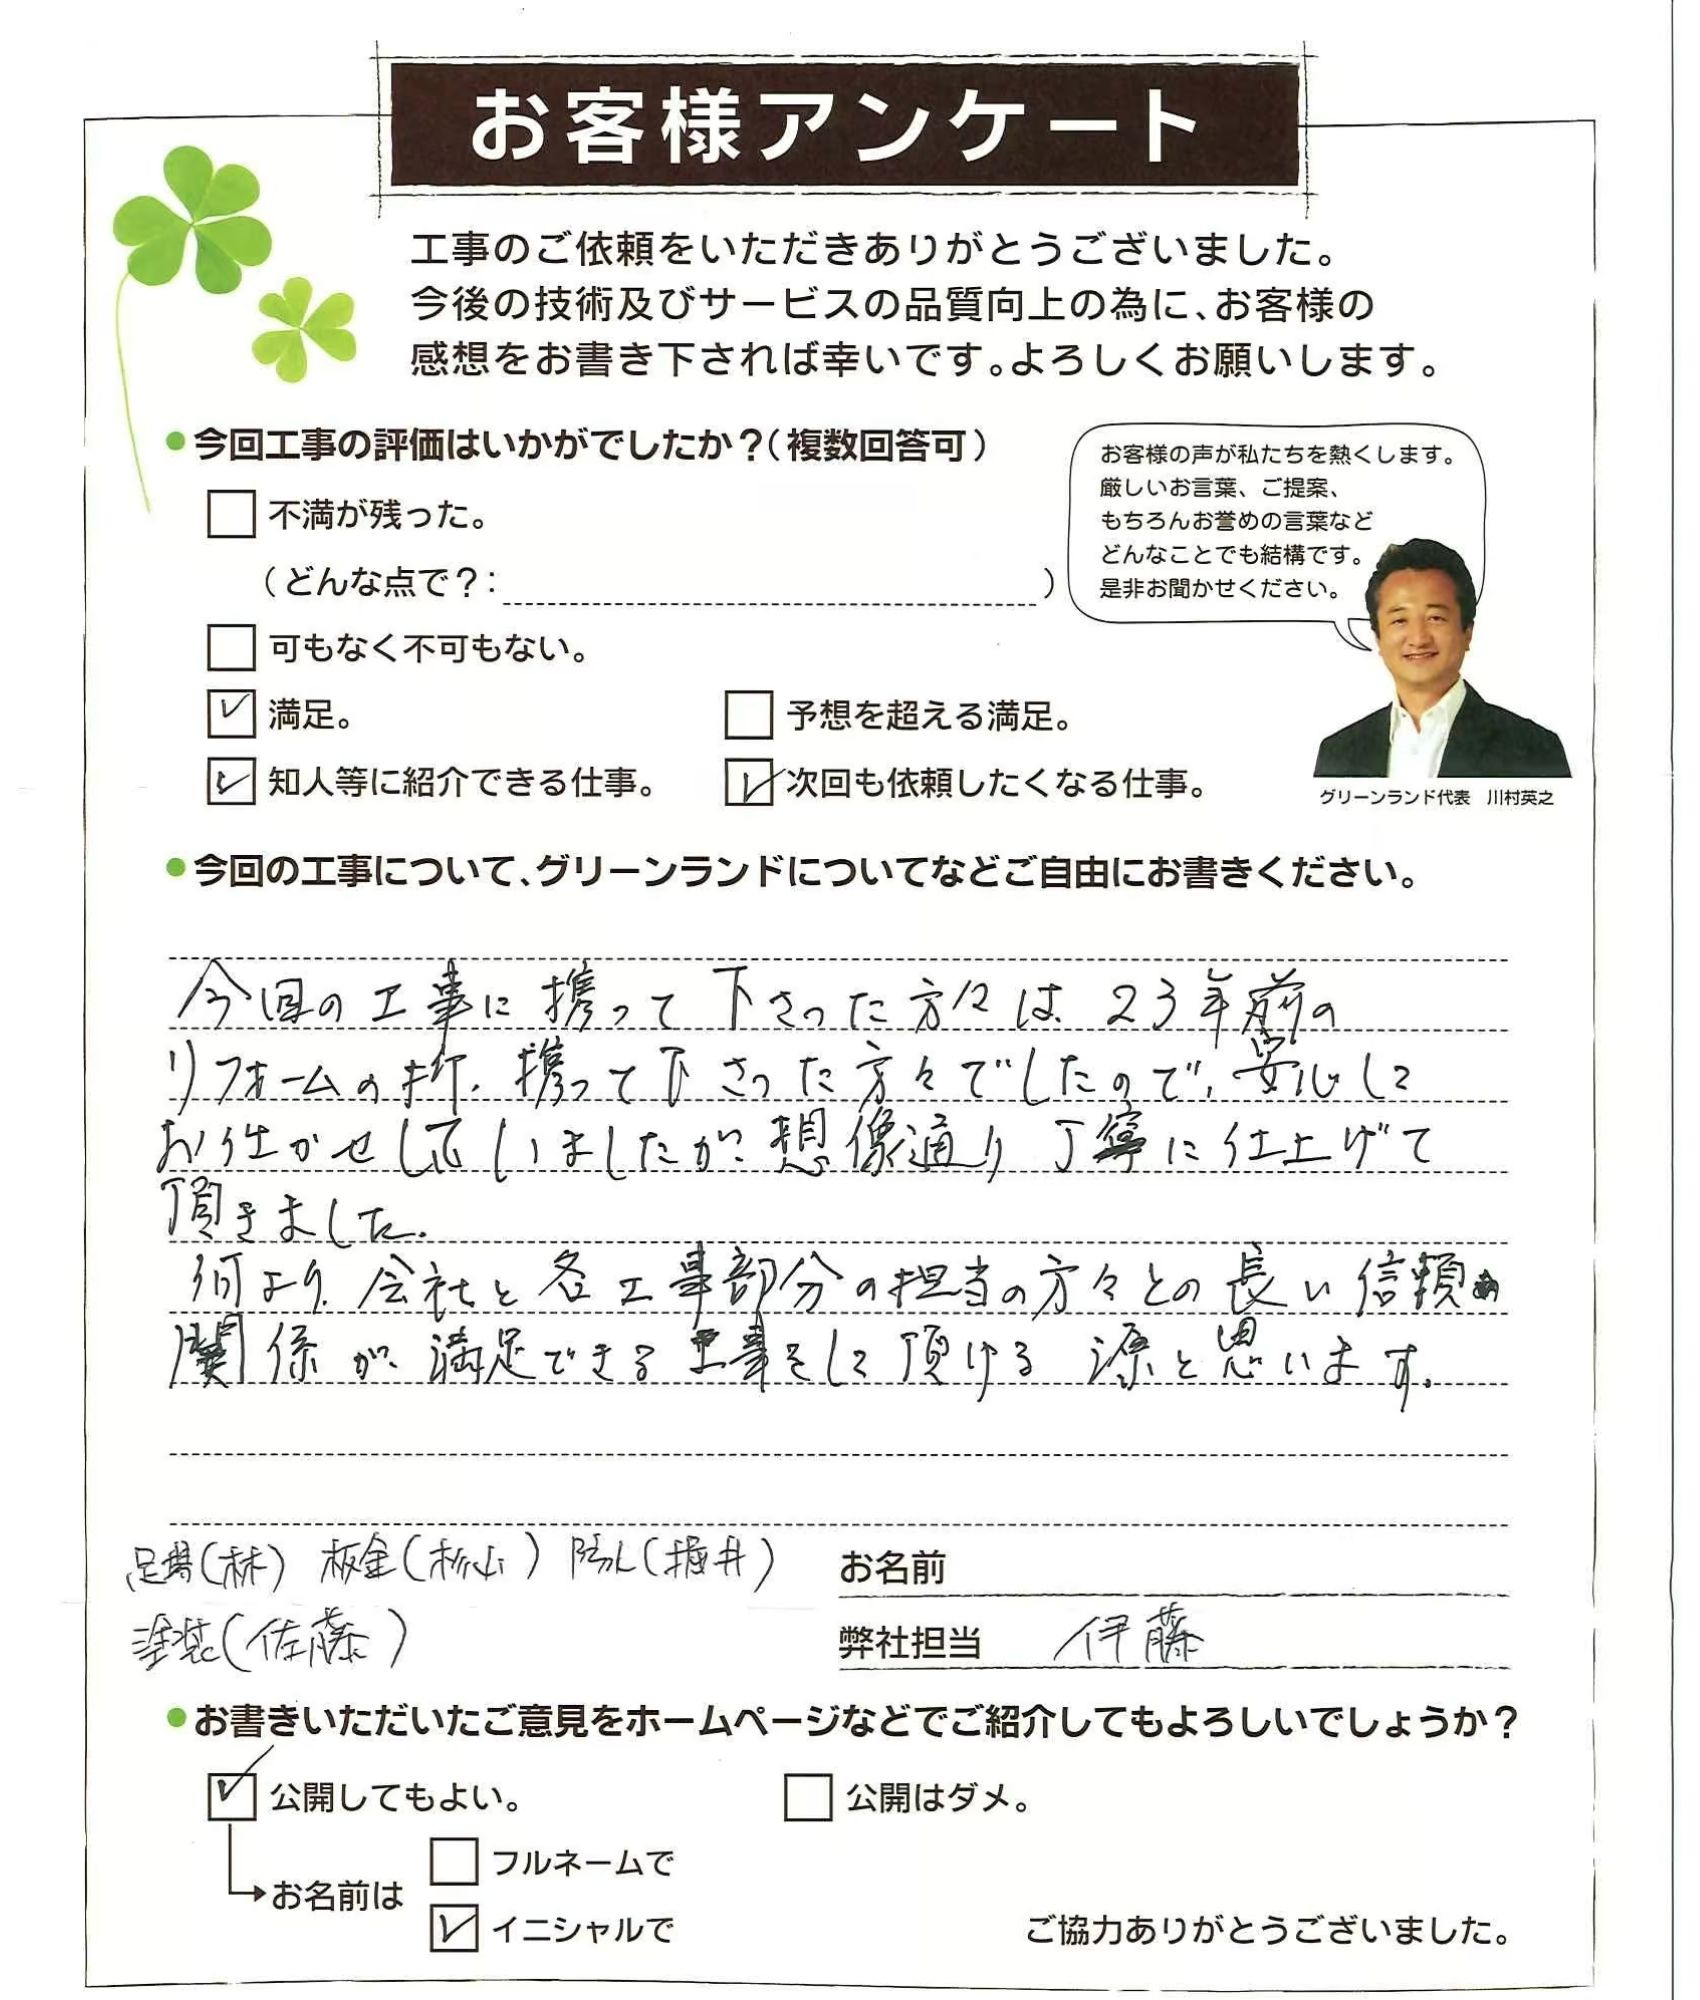 お客様アンケート
工事のご依頼をいただきありがとうございました。
今後の技術及びサービスの品質向上の為に、お客様の
感想をお書き下されば幸いです。よろしくお願いします。
今回工事の評価はいかがでしたか?(複数回答可)
お客様の声が私たちを熱くします。
厳しいお言葉、ご提案、
もちろんお誉めの言葉など
どんなことでも結構です。
是非お聞かせください。
不満が残った。
(どんな点で?: )
可もなく不可もない。
満足。 予想を超える満足。
知人等に紹介できる仕事。 次回も依頼したくなる仕事。
グリーンランド代表 川村英之
今回の工事について、グリーンランドについてなどご自由にお書きください。
今回の工事に携って下さった方々は、23年前の
リフォームの折、携って下さった方々でしたので、安心して
お任かせしていましたが、想像通り丁寧に仕上げて
頂きました。
何より、会社と各工事部分の担当の方々との長い信頼
関係が、満足できる工事をして頂ける源と思います。
足場(林) 板金(杉山) 防水(堀井)
塗装(佐藤)
お名前
弊社担当 伊藤
お書きいただいたご意見をホームページなどでご紹介してもよろしいでしょうか?
公開してもよい。 公開はダメ。
お名前は
フルネームで
イニシャルで
ご協力ありがとうございました。